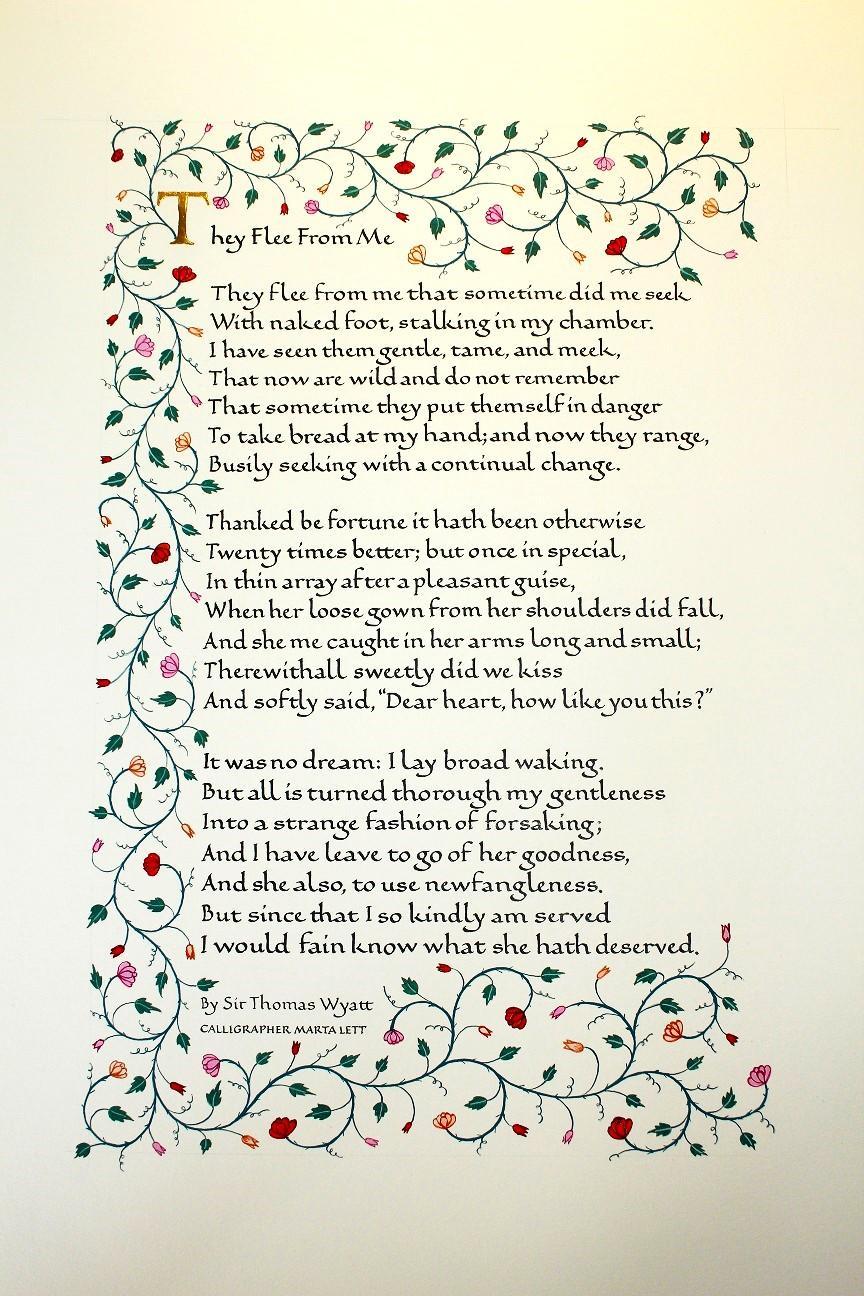 They Flee From Me
They flee from me that sometime did me seek
With naked foot, stalking in my chamber.
I have seen them gentle, tame, and meek,
That now are wild and do not remember
That sometime they put themself in danger
To take bread at my hand; and now they range,
Busily seeking with a continual change.
Thanked be fortune it hath been otherwise
Twenty times better; but once in special,
In thin array after a pleasant guise,
When her loose gown from her shoulders did fall,
And she me caught in her arms long and small;
Therewithall sweetly did we kiss
And softly said, "Dear heart, how like you this?"
It was no dream: I lay broad waking.
But all is turned thorough my gentleness
Into a strange fashion of forsaking;
And I have leave to go of her goodness,
And she also, to use newfangleness.
But since that I so kindly am served
I would fain know what she hath deserved.
By Sir Thomas Wyatt
CALLIGRAPHER MARTA LETT